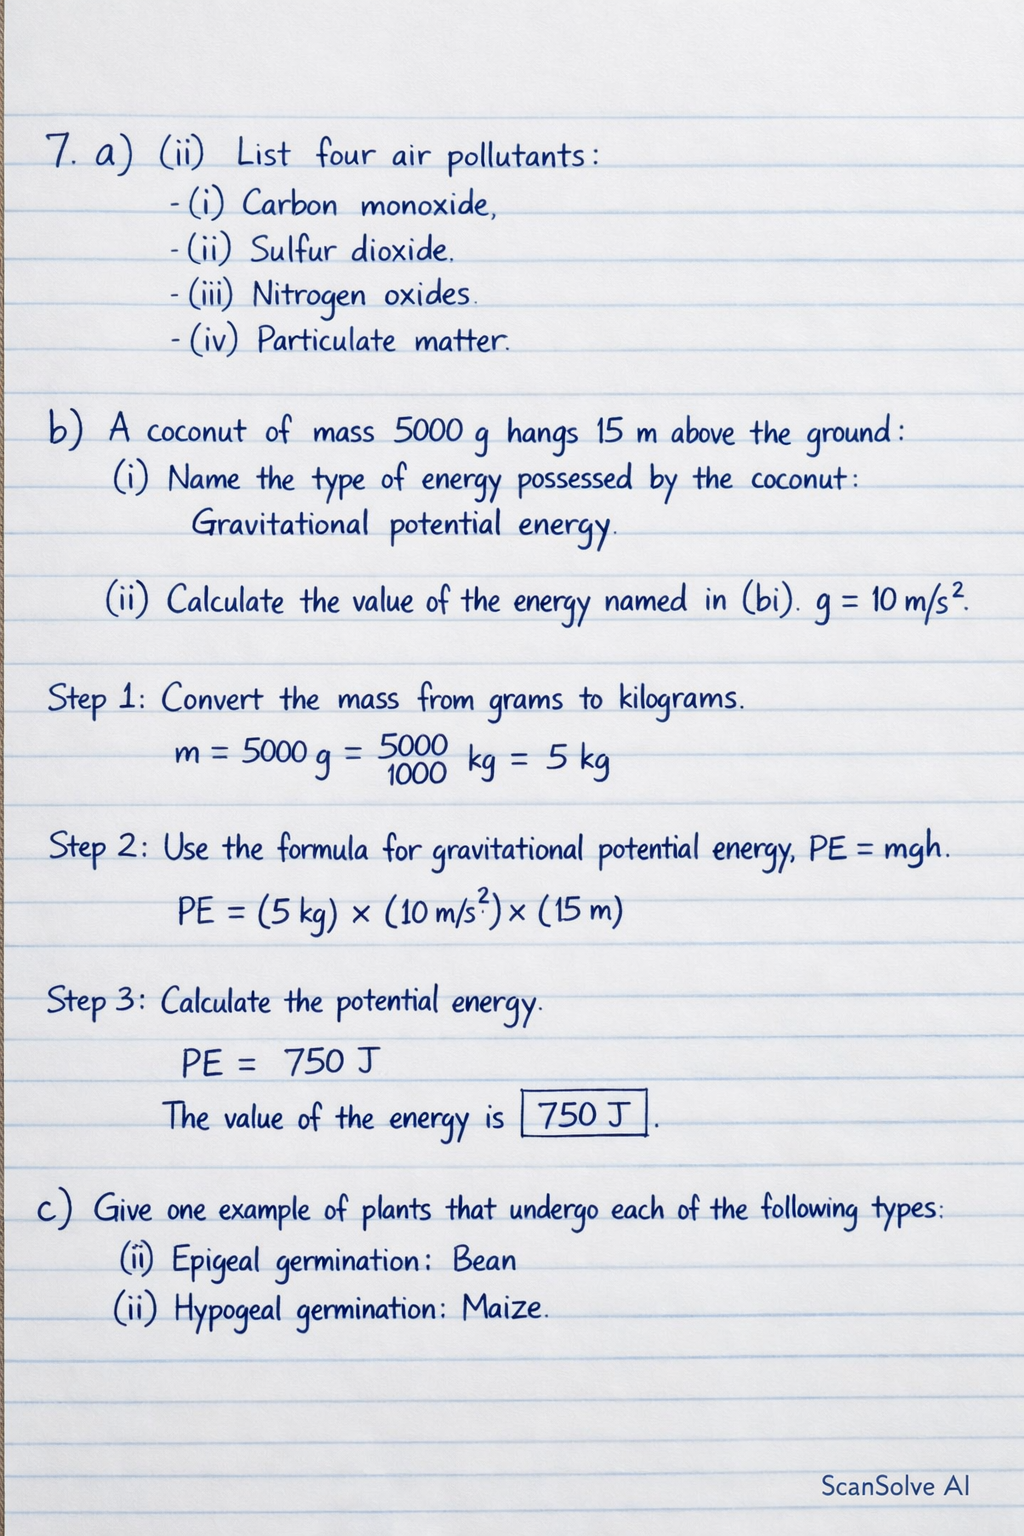 7. a) (ii) List four air pollutants:
- (i) Carbon monoxide,
- (ii) Sulfur dioxide.
- (iii) Nitrogen oxides.
- (iv) Particulate matter.
b) A coconut of mass 5000 g hangs 15 m above the ground:
(i) Name the type of energy possessed by the coconut:
Gravitational potential energy.
(ii) Calculate the value of the energy named in (bi). g = 10 m/s².
Step 1: Convert the mass from grams to kilograms.
m = 5000 g = 5000/1000 kg = 5 kg
Step 2: Use the formula for gravitational potential energy, PE = mgh.
PE = (5 kg) × (10 m/s²) × (15 m)
Step 3: Calculate the potential energy.
PE = 750 J
The value of the energy is 750 J.
c) Give one example of plants that undergo each of the following types:
(ii) Epigeal germination: Bean
(ii) Hypogeal germination: Maize.
ScanSolve AI